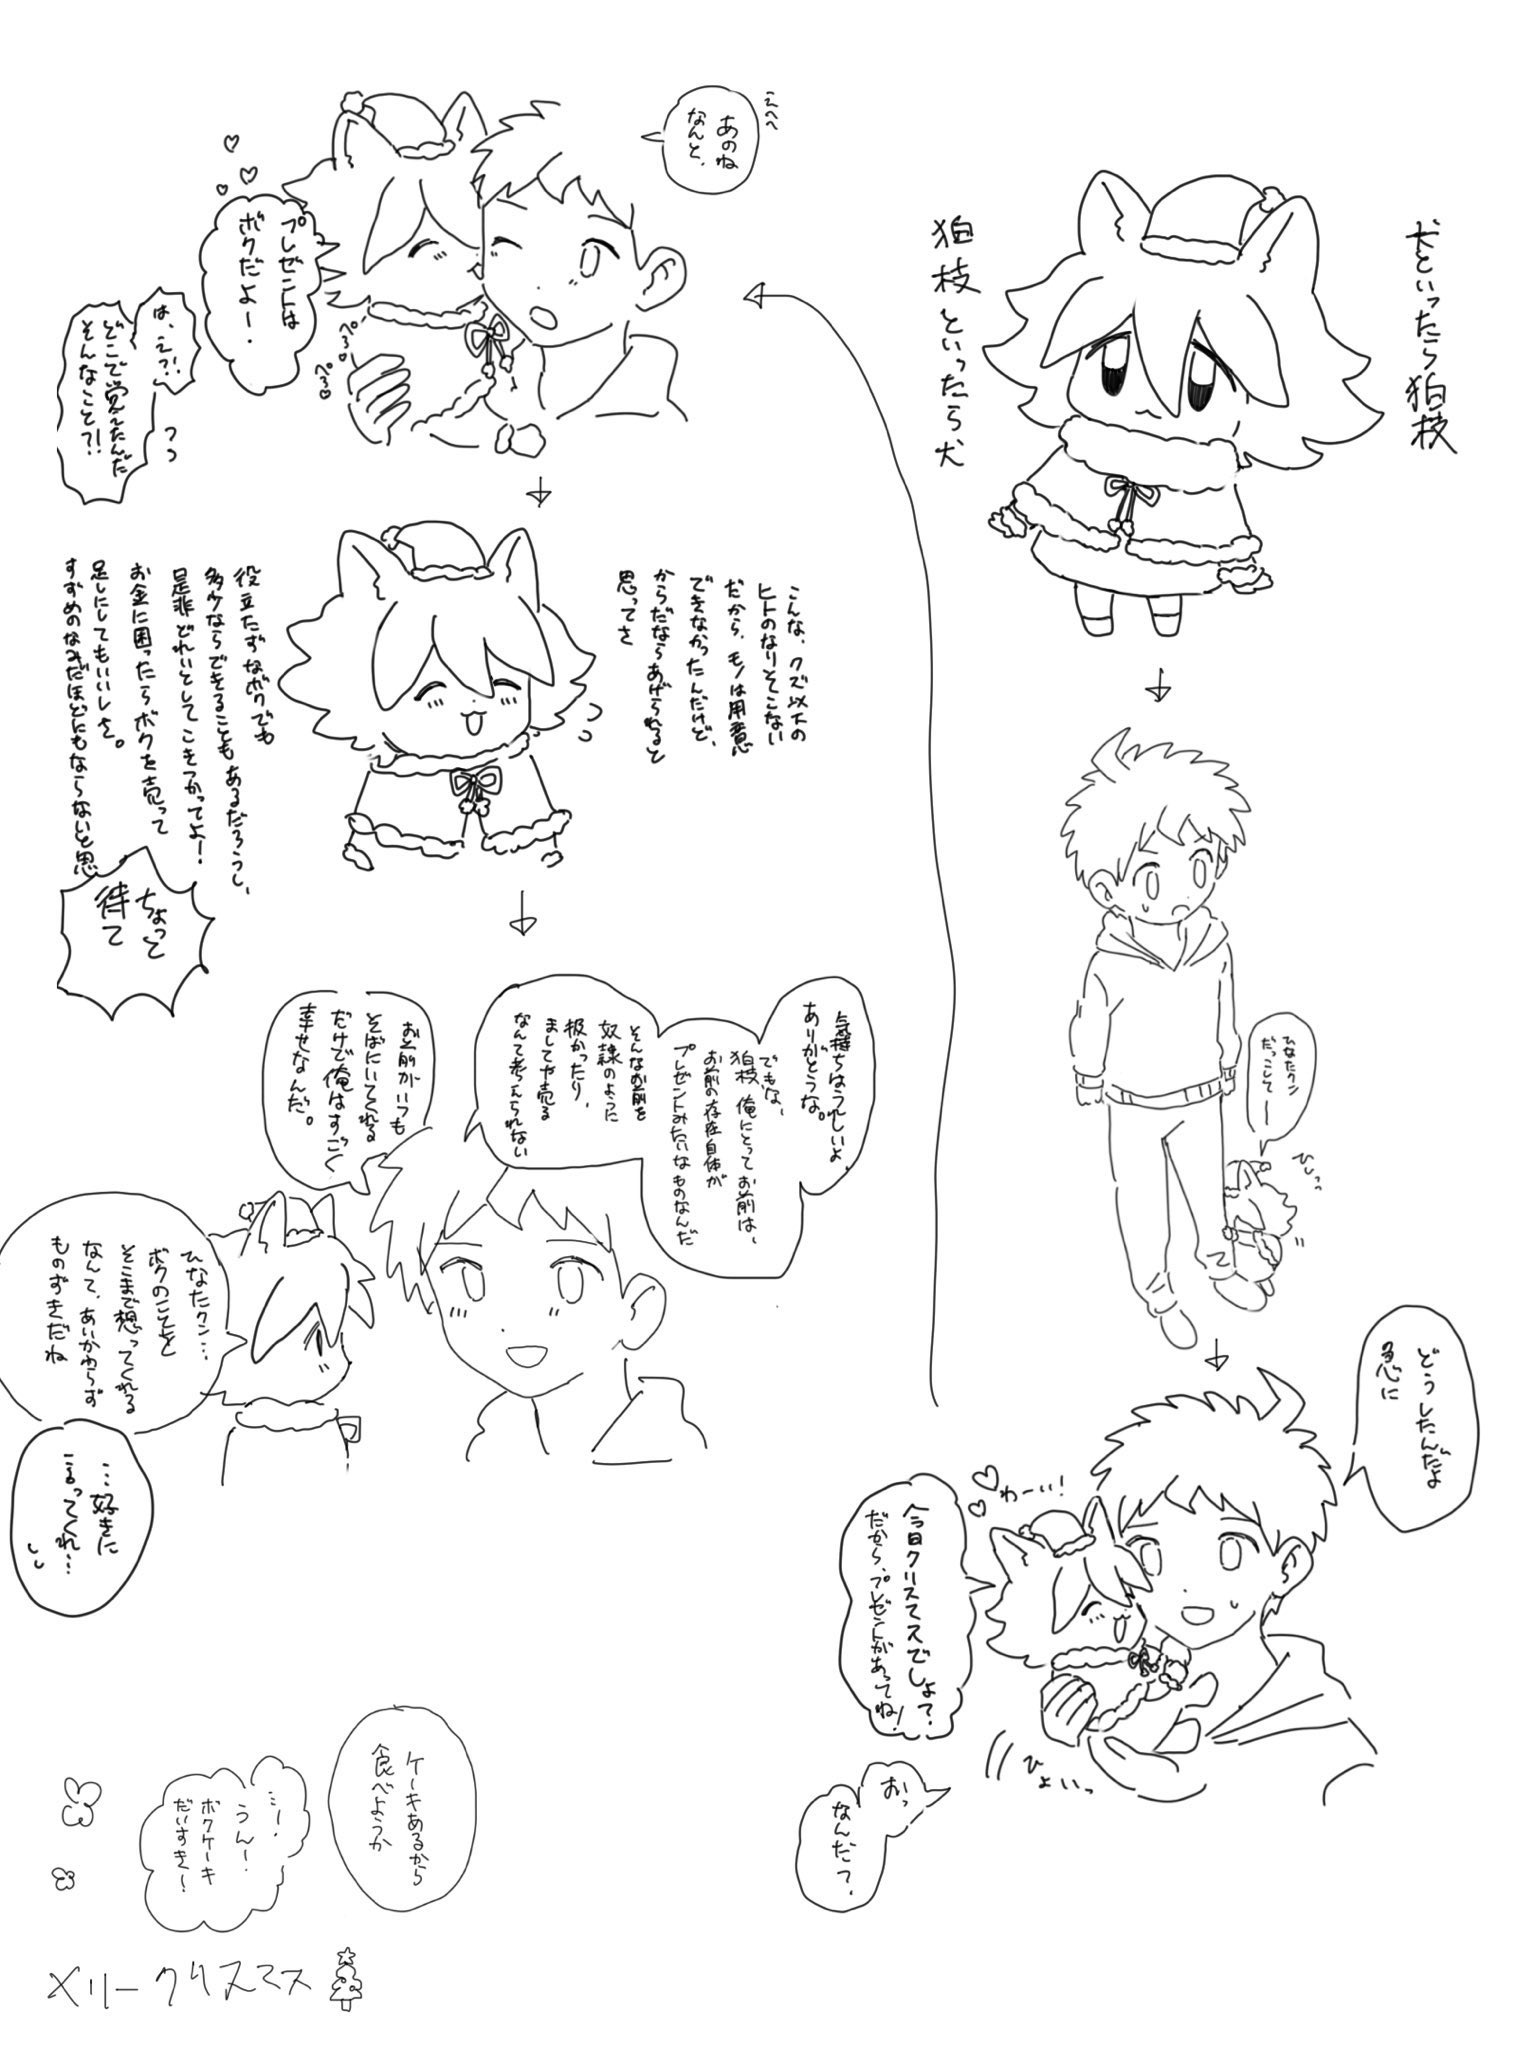 犬といったら狛枝
狛枝といったら犬
ひなたクン
だっこしてー
ひしっっ
どうしたんだよ
急に
わーい!
今日クリスマスでしょ?
だから、プレゼントがあってね!
ひょいっ
おっ
なんだ?
えへへ
あのね
なんと、
プレゼントは
ボクだよー!
ぺろ
ぺろ
は、え?!
どこで覚えたんだ
そんなこと?!
こんな、クズ以下の
ヒトのなりそこない
だから、モノは用意
できなかったんだけど、
からだならあげられると
思ってさ
役立たずなボクでも
多少ならできることもあるだろうし、
是非どれいとしてこきつかってよ!
お金に困ったらボクを売って
足しにしてもいいしさ。
すずめのなみだほどにもならないと思
ちょっと
待て
気持ちはうれしいよ、
ありがとうな。
でもな、
狛枝、俺にとってお前は、
お前の存在自体が
プレゼントみたいなものなんだ
そんなお前を
奴隷のように
扱かったり、
ましてや売る
なんて考えられない
お前がいつも
そばにいてくれる
だけで俺はすっごく
幸せなんだ。
ひなたクン…
ボクのことを
そこまで想ってくれる
なんて、あいかわらず
ものずきだね
…好きに
言ってくれ…
ケーキあるから
食べようか
…!
うん!
ボクケーキ
だいすき!
メリークリスマス